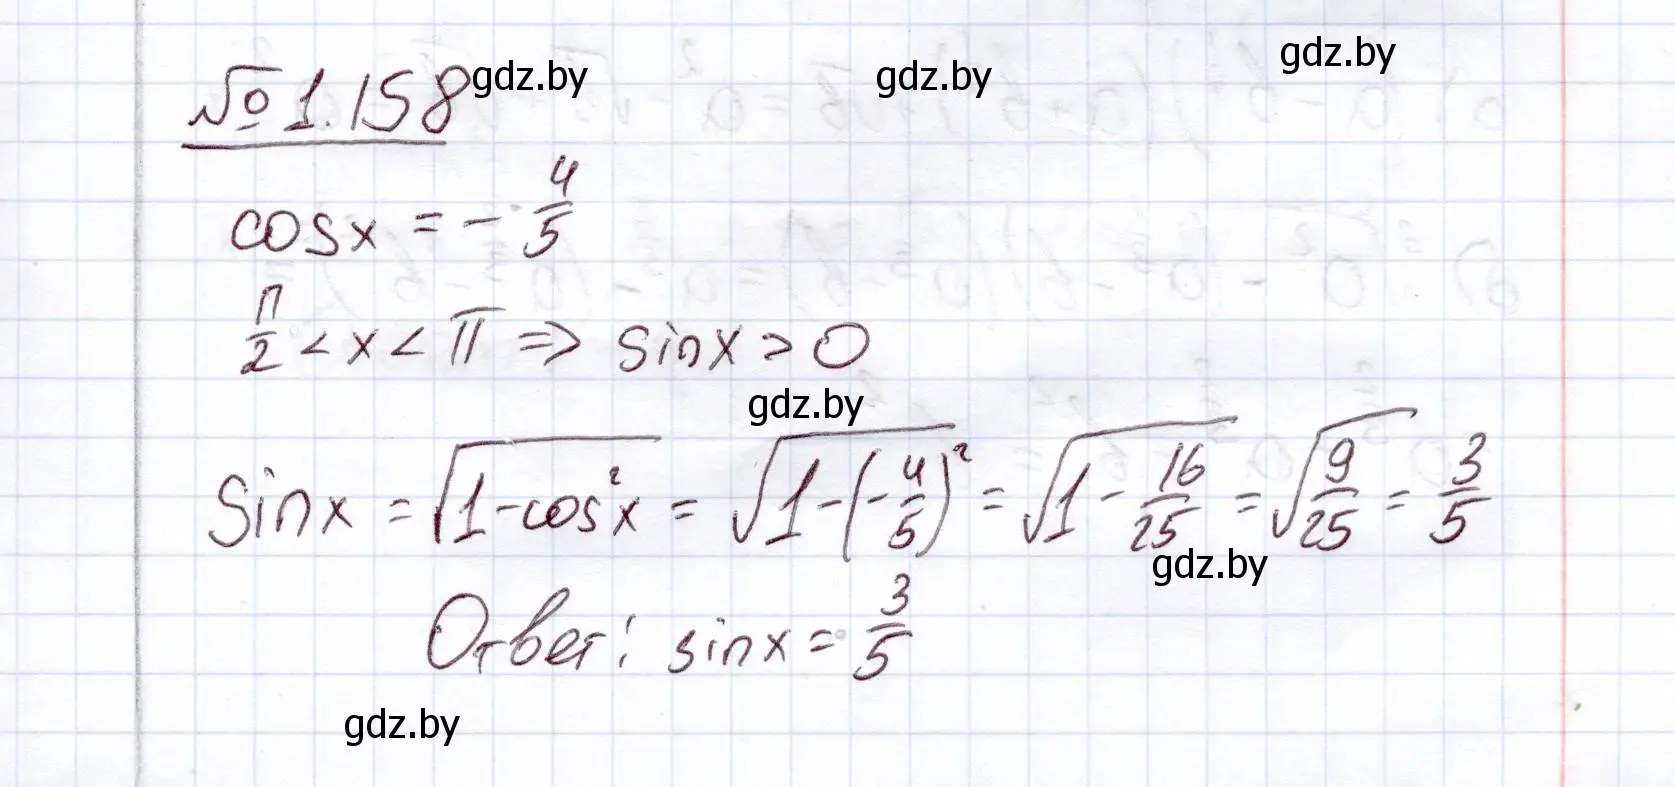 № 1.158 gdz.by gdz.by gdz.by
cosx = - 4/5
π/2 < x < π => sinx > 0
gdz.by
sinx = √(1-cos²x) = √(1-(-4/5)²) = √(1-16/25) = √(9/25) = 3/5
gdz.by
Ответ: sinx = 3/5
gdz.by